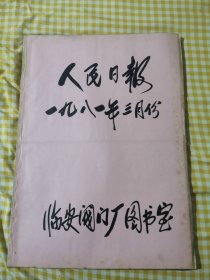 人民日报
一九八一年三月份
临安阀门厂图书室